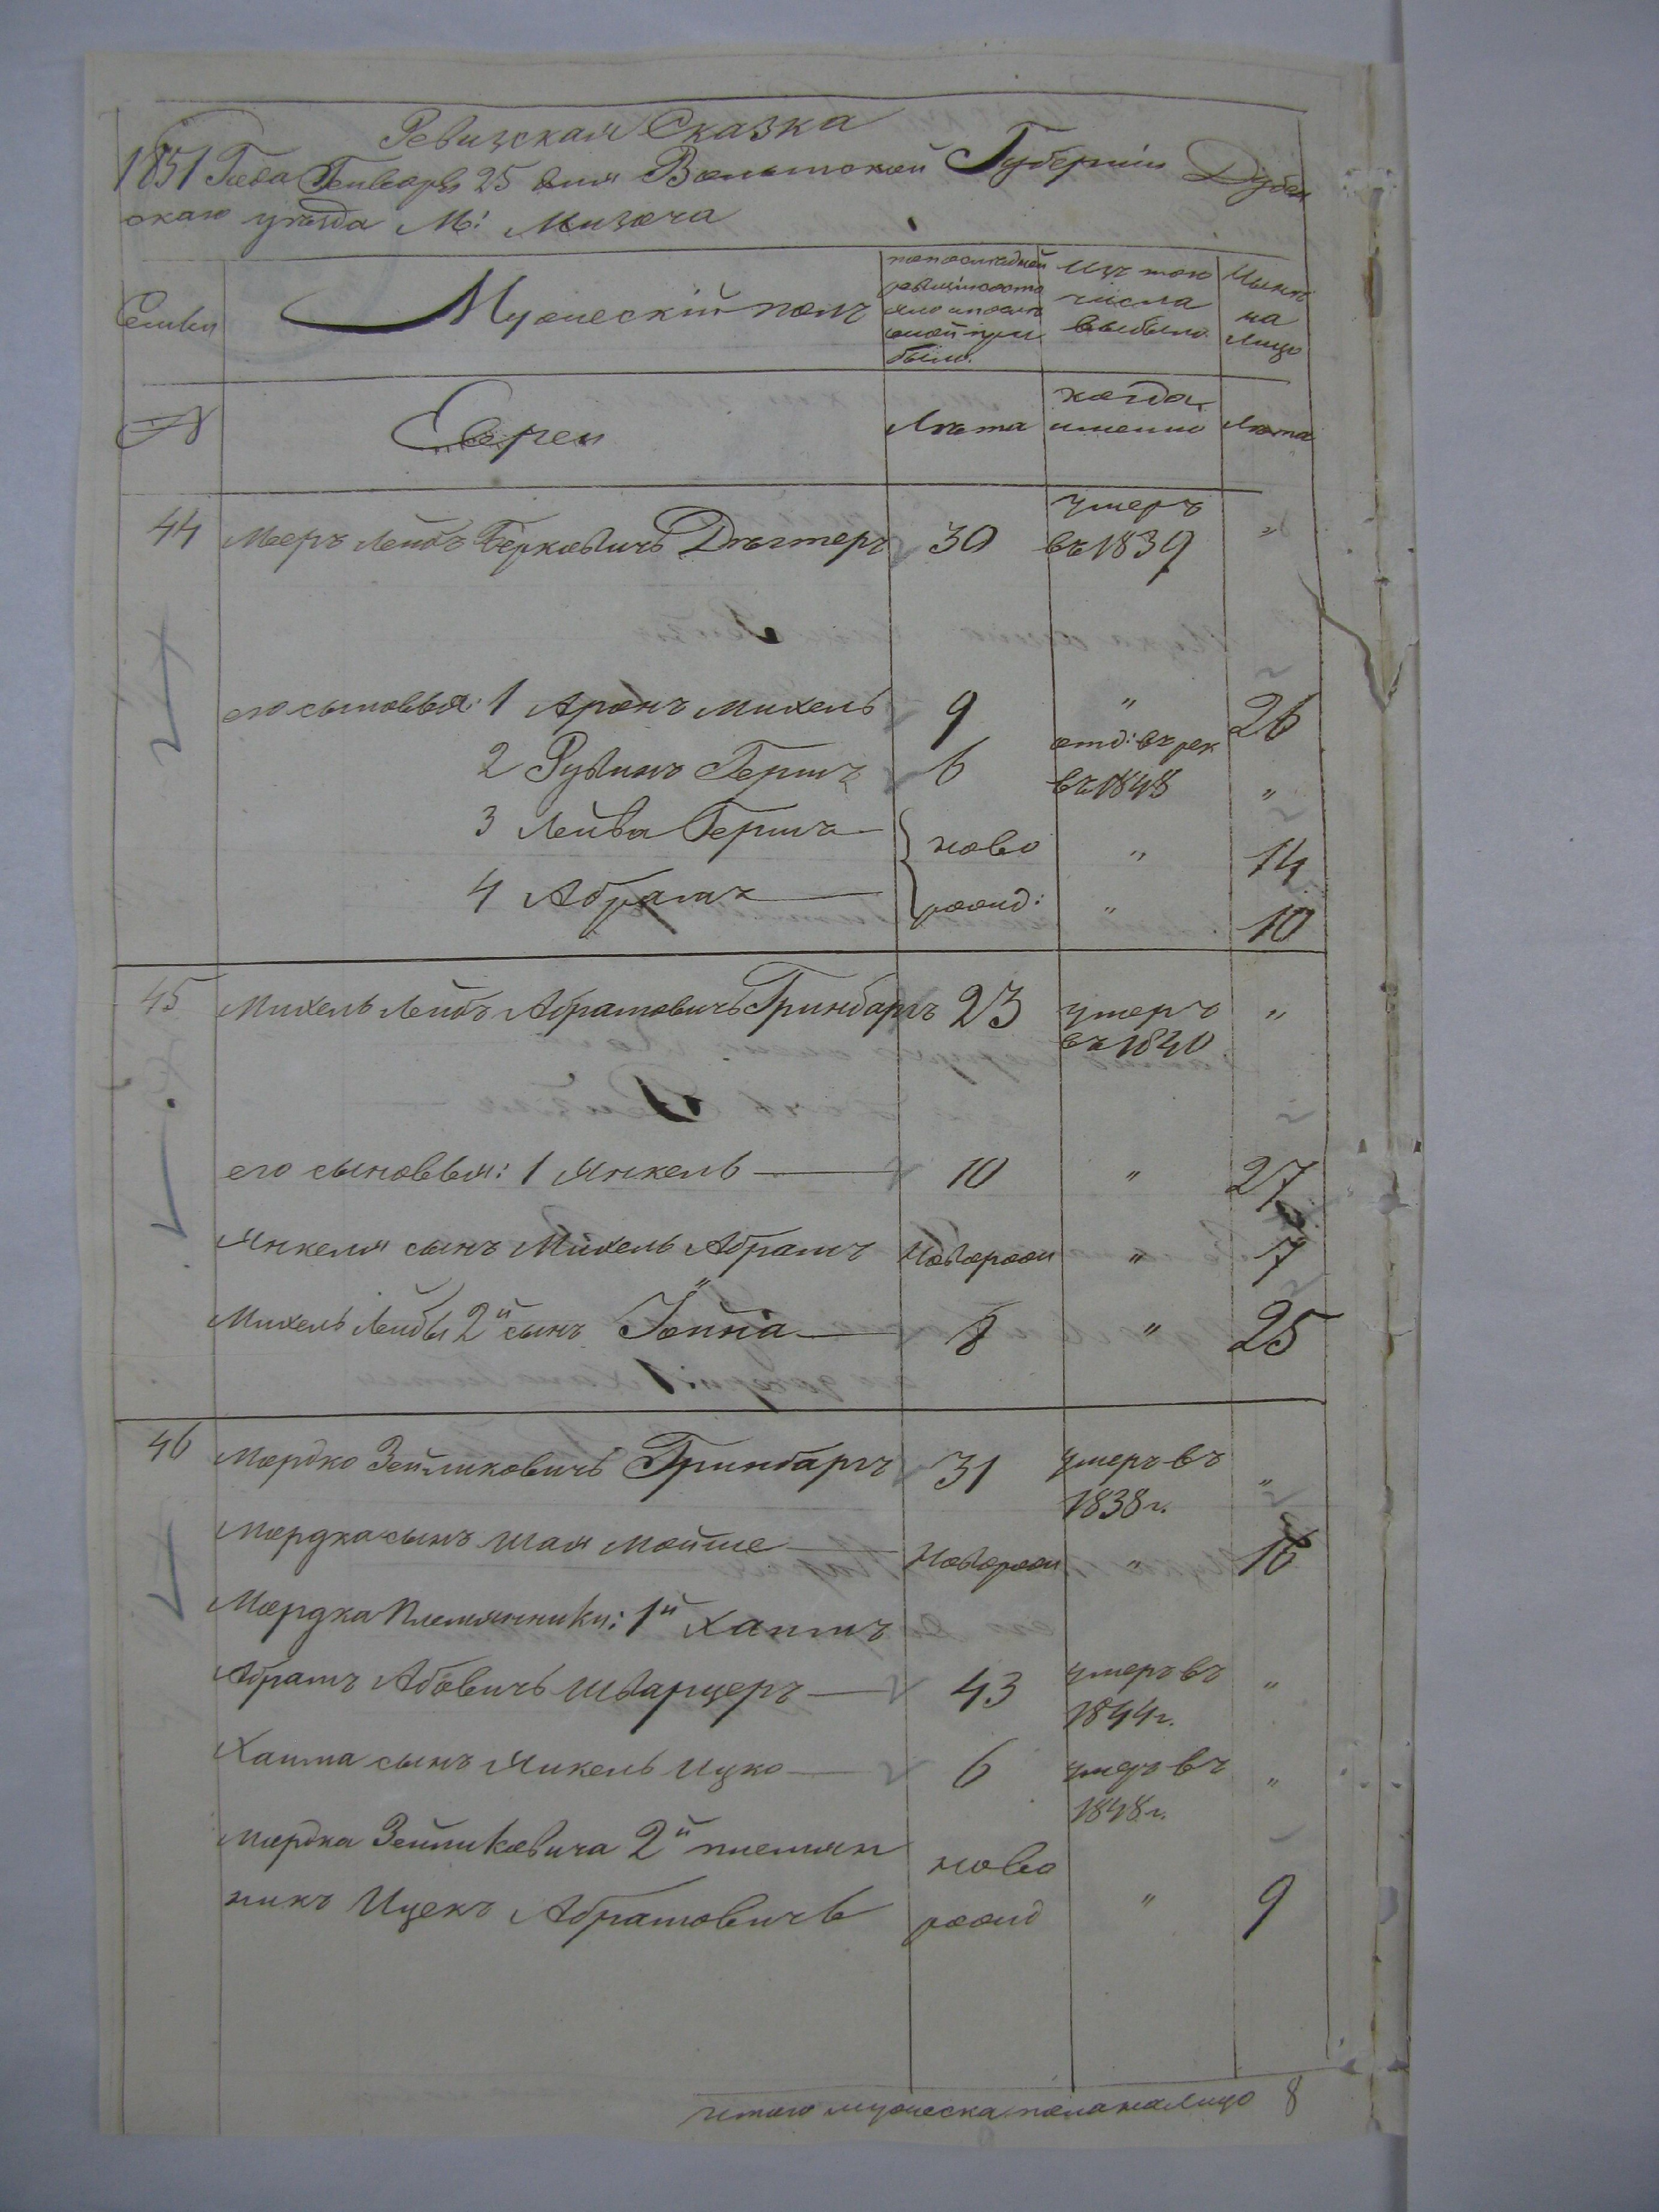 Ревизская Сказка
1851 Года Генваря 25 дня Волынской Губернии Дубен
скаго уѣзда М: Мизоча
Семьи
Мужескій полъ
по последней ревизіи состо яло и после оной при было.
Изъ того числа выбыло.
Нынѣ на лицо
№
Евреи
Лѣта
когда именно
Лѣта
44 Мееръ Лейбъ Берковичъ 30 умеръ въ 1839 "
его сыновья: 1 Аронъ Михель 9 " 26
2 Рувинъ Гершъ 6 отд: въ рек въ 1848 "
3 Лейва Гершъ ново " 14
4 Абрамъ рожд: " 10
45 Михель Лейбъ Абрамовичъ Гринбаргъ 23 умеръ въ 1840 "
его сыновья: 1 Янкель 10 " 27
Янкеля сынъ Михель Абрамъ Новорож " 7
Михель Лейбы 2й сынъ 8 " 25
46 Мордко Зейликовичъ Гринбаргъ 31 умеръ въ 1838 г. "
Мордка сынъ Шая Мойше Новорож " 16
Мордка Племянники: 1й Хаимъ
Абрамъ Абовичъ Шварцеръ 43 умеръ въ 1844 г. "
Хаима сынъ Янкель Ицко 6 умеръ въ 1848 г. "
Мордка Зейликовича 2й племян ново
никъ Ицекъ Абрамовичъ рожд " 9
итого мужеска пола на лицо 8